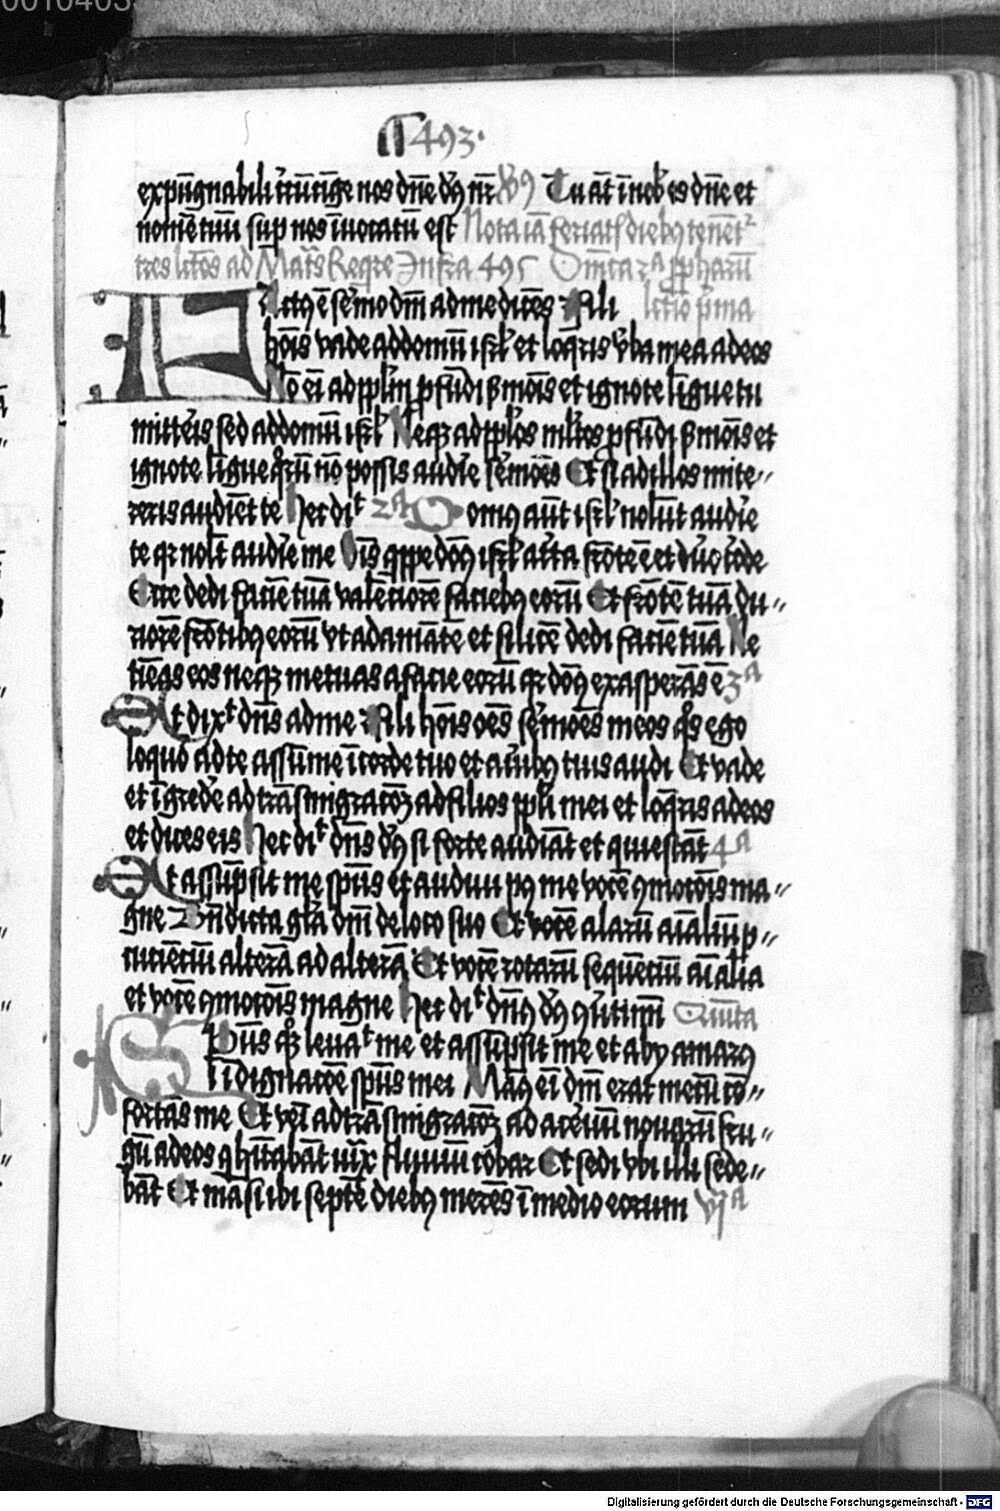 00104035
¶ 493.
expūgnabili circūcīge nos dn̄e dꝰ nr̄ Vꝰ Tu aūt ī nob̄ es dn̄e et
nomē tuū sup nos īuocatū est Nota iā ferialꝭ diebꝰ tenet
tres lc̄oes ad Mat̄s Reqre Infra 495 Dn̄ica 2ª ꝓphaꝝ
Factꝰ ē sermo dn̄i ad me dicēs Fili lectio p̄ma
hoīs vade ad domū isrl̄ et loq̄ris v̄ba mea ad eos
Nō eī ad ppl̄m ꝓfūdi ẜmoīs et ignote līgue tu
mitteris sed ad domū isrl̄ Neqꝫ ad ppl̄os ml̄tos ꝓfūdi ẜmoīs et
ignote līgue qͦꝝ nō possis audīe sermōes Et si ad illos mite〃
reris audiēt te Hec diͭ 2ª Domꝰ aūt isrl̄ nolūt audīe
te qꝛ nolūt audīe me Oīs qͥppe domꝰ isrl̄ att̄ta frōte ē et duͦ corde
Ecce dedi faciē tuā valēciorē faciebꝰ eoꝝ Et frōtē tuā du〃
riorē frōtibꝰ eoꝝ vt adamātē et silicē dedi faciē tuā Ne
timeas eos neqꝫ metuas a facie eoꝝ qꝛ domꝰ exasperās ē 3ª
Et dixͭ dn̄s ad me Fili hoīs oēs sermōes meos qͦs ego
loquor ad te assume ī corde tuo et auribꝰ tuis audi Et vade
et īgredē ad trāsmigracōꝫ ad filios ppl̄i mei et loq̄ris ad eos
et dices eis Hec diͭ dn̄s dꝰ si forte audiāt et quiescāt 4ª
Et assūpsit me spūs et audiui pꝰ me vocē ꝯmocōis ma〃
gne Bn̄dicta gl̄a dn̄i de loco suo Et vocē alaꝝ aīaliū ꝑ〃
cuciēciū alterā ad alterā Et vocē rotaꝝ sequēciū aīalia
et vocē ꝯmocōis magne Hec diͭ dn̄s dꝰ ꝯūtimī Quīta
Spūs qͦꝫ leuaͭ me et assūpsit me et abij amarꝰ
ī īdignacōe spūs mei Manꝰ eī dn̄i erat mecū cō〃
fortās me Et veī ad trāsmigracōꝫ ad aceruū nouaꝝ fru〃
gū ad eos q̄ hītabāt iux̄ fluuiū cobar Et sedi vbi illi sede〃
bāt Et māsi ibi septē diebꝰ merēs ī medio eorum vjª
Digitalisierung gefördert durch die Deutsche Forschungsgemeinschaft - DFG